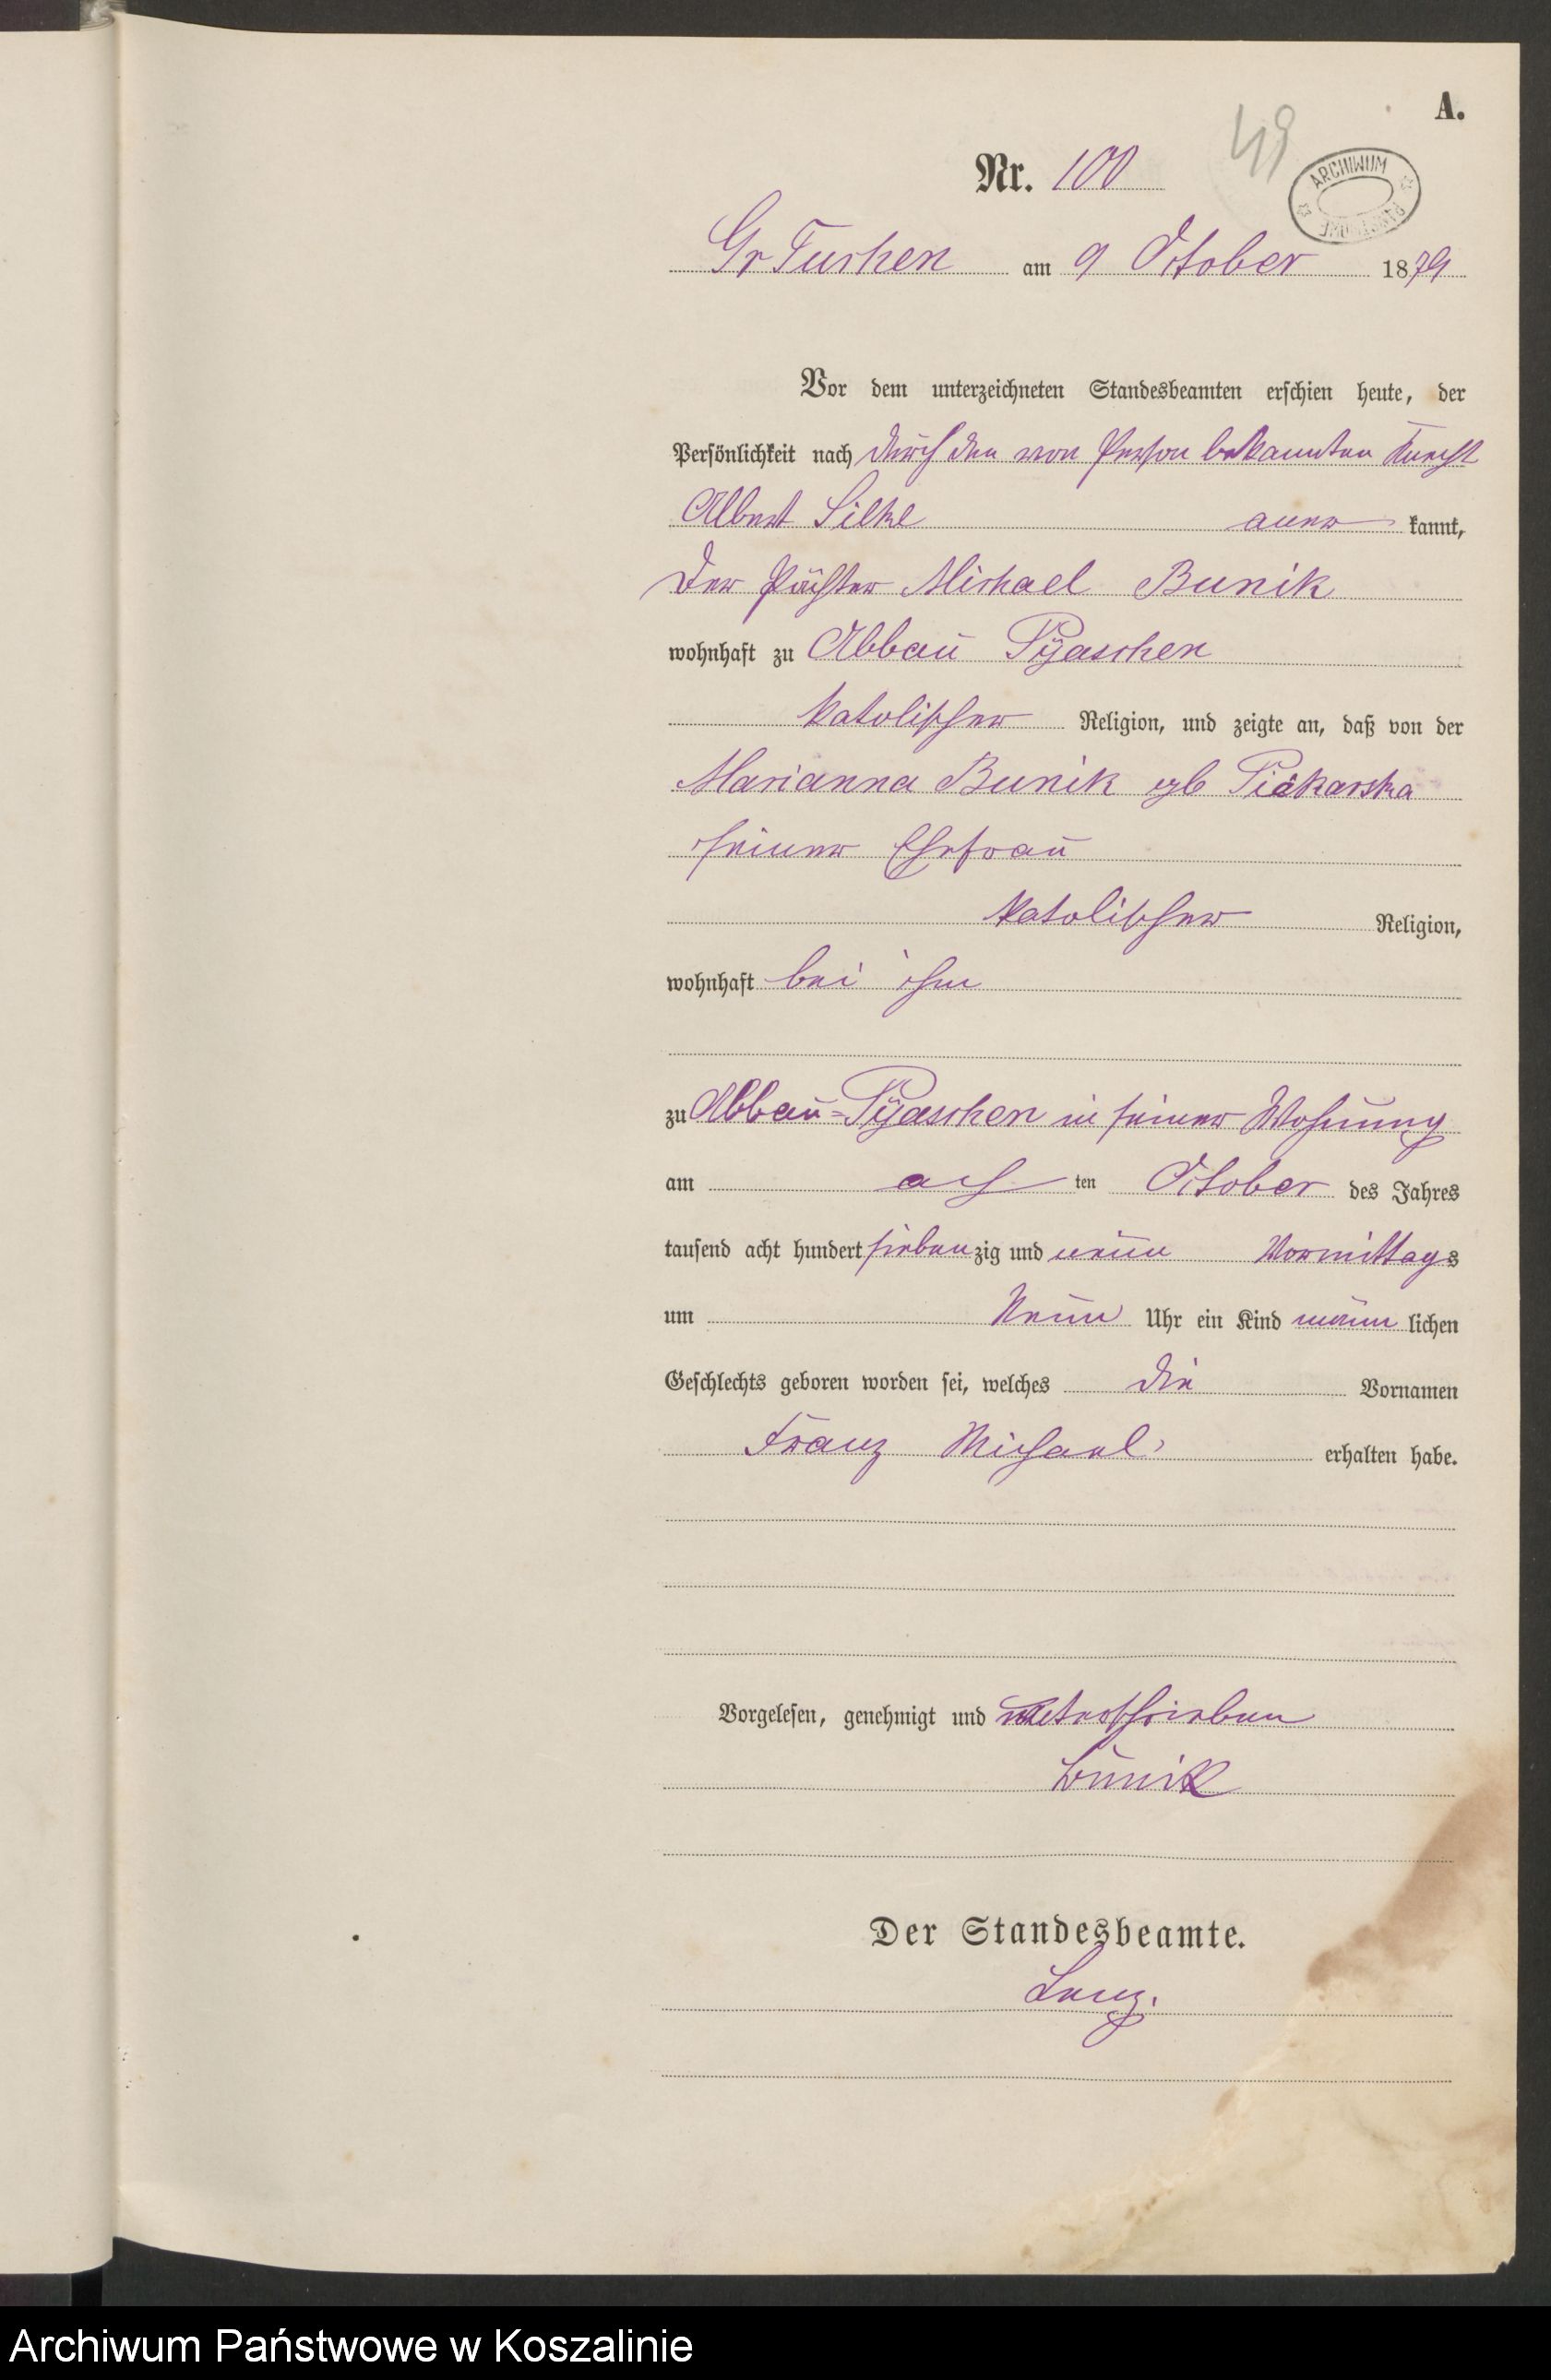 A.
49
Nr. 100
ARCHIWUM PAŃSTWOWE
Gr Tuchen am 9 October 1879
Vor dem unterzeichneten Standesbeamten erschien heute, der
Persönlichkeit nach durch den von Person bekannten Knecht
Albert Silke aner kannt,
der Pächter Michael Bunik
wohnhaft zu Abbau Pyaschen
katolischer Religion, und zeigte an, daß von der
Marianna Bunik gb Piekarska
seiner Ehefrau
katolischer Religion,
wohnhaft bei ihm
zu Abbau=Pyaschen in seiner Wohnung
am ach ten October des Jahres
tausend acht hundert sieben zig und neun Vormittags
um Neun Uhr ein Kind männ lichen
Geschlechts geboren worden sei, welches die Vornamen
Franz Michael erhalten habe.
Vorgelesen, genehmigt und unterschrieben
Bunik
Der Standesbeamte.
Archiwum Państwowe w Koszalinie